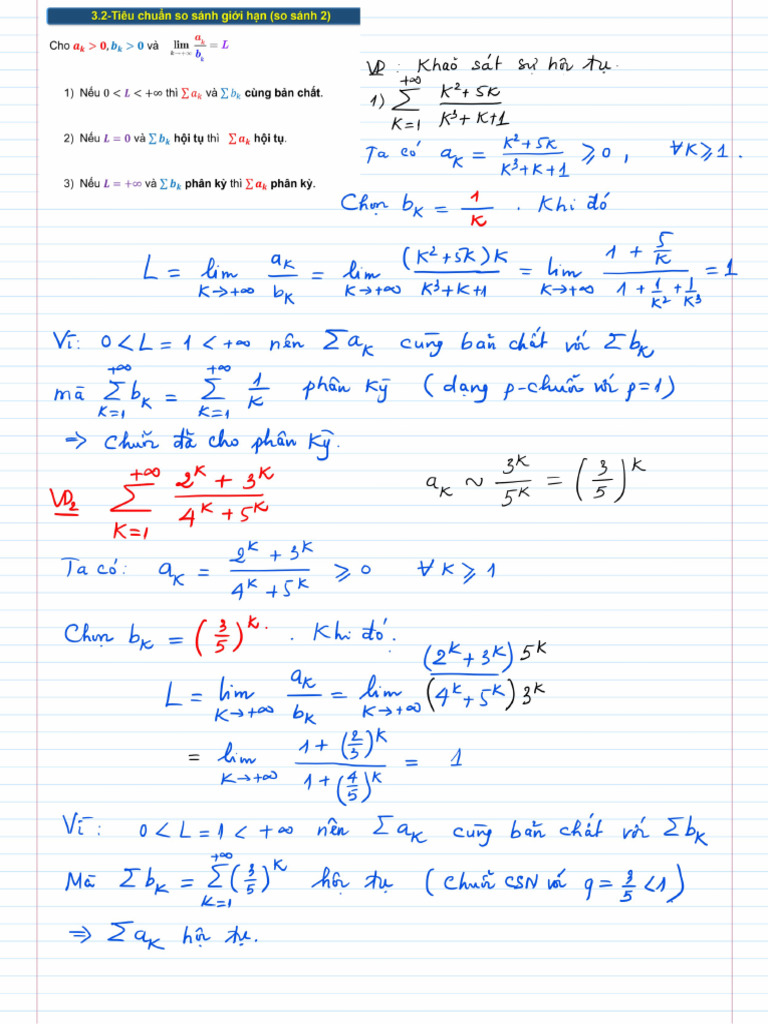 3.2-Tiêu chuẩn so sánh giới hạn (so sánh 2)
Cho a_k > 0, b_k > 0 và lim_{k→+∞} a_k/b_k = L
1) Nếu 0 < L < +∞ thì ∑a_k và ∑b_k cùng bản chất.
2) Nếu L = 0 và ∑b_k hội tụ thì ∑a_k hội tụ.
3) Nếu L = +∞ và ∑b_k phân kỳ thì ∑a_k phân kỳ.
VD : Khảo sát sự hội tụ.
1) ∑_{K=1}^{+∞} (K²+5K)/(K³+K+1)
Ta có a_K = (K²+5K)/(K³+K+1) ⩾ 0, ∀K⩾1.
Chọn b_K = 1/K . Khi đó
L = lim_{K→+∞} a_K/b_K = lim_{K→+∞} (K²+5K)K/(K³+K+1) = lim_{K→+∞} (1 + 5/K)/(1 + 1/K² + 1/K³) = 1
Vì: 0<L=1<+∞ nên ∑a_K cùng bản chất với ∑b_K
mà ∑_{K=1}^{+∞} b_K = ∑_{K=1}^{+∞} 1/K phân kỳ (dạng p-chuỗi với p=1)
=> Chuỗi đã cho phân kỳ.
VD₂ ∑_{K=1}^{+∞} (2^K + 3^K)/(4^K + 5^K)
a_K ~ 3^K/5^K = (3/5)^K
Ta có: a_K = (2^K + 3^K)/(4^K + 5^K) ⩾ 0 ∀K⩾1
Chọn b_K = (3/5)^K. . Khi đó:
L = lim_{K→+∞} a_K/b_K = lim_{K→+∞} (2^K+3^K)5^K/(4^K+5^K)3^K
= lim_{K→+∞} (1+(2/3)^K)/(1+(4/5)^K) = 1
Vì: 0<L=1<+∞ nên ∑a_K cùng bản chất với ∑b_K
Mà ∑b_K = ∑_{K=1}^{+∞} (3/5)^K hội tụ (Chuỗi CSN với q=3/5<1)
=> ∑a_K hội tụ.